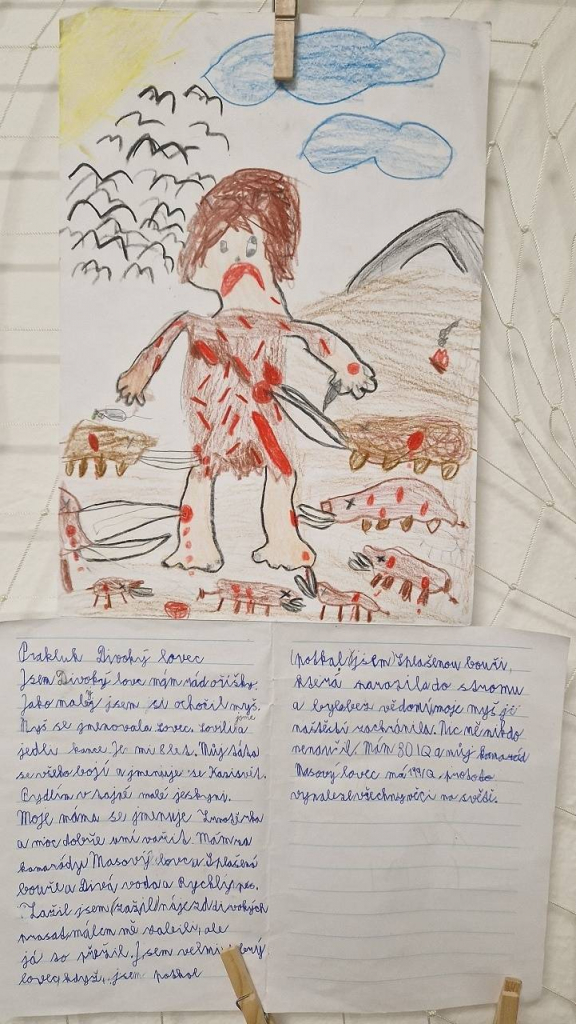 Prakluk Divoký lovec
Jsem Divoký lovec mám rád oříšky.
Jako malý jsem si ochočil myš.
Myš se jmenovala Lovec. Lovili a
jsme
jedli kance. Je mi 8 let. Můj táta
se všeho bojí a jmenuje se
Bydlím v tajné malé jeskyni.
Moje máma se jmenuje
a moc dobře umí vařit. Mám za
kamarády Masový lovec Splašená
bouři a Divá voda a Rychlý pes.
Zažil jsem (zažil) nájezd divokých
prasat, málem mě zabili, ale
já to přežil. Jsem velmi
lovec, když, jsem potkal
(potkal jsem) Splašenou bouři,
která narazila do stromu
a byla bez vědomí moje myš ji
naštěstí zachránila. Nic mě nikdo
nenaučil. Mám 80 IQ a můj kamarád
Masový lovec má IQ protože
vynalezl všechny věci na světě.